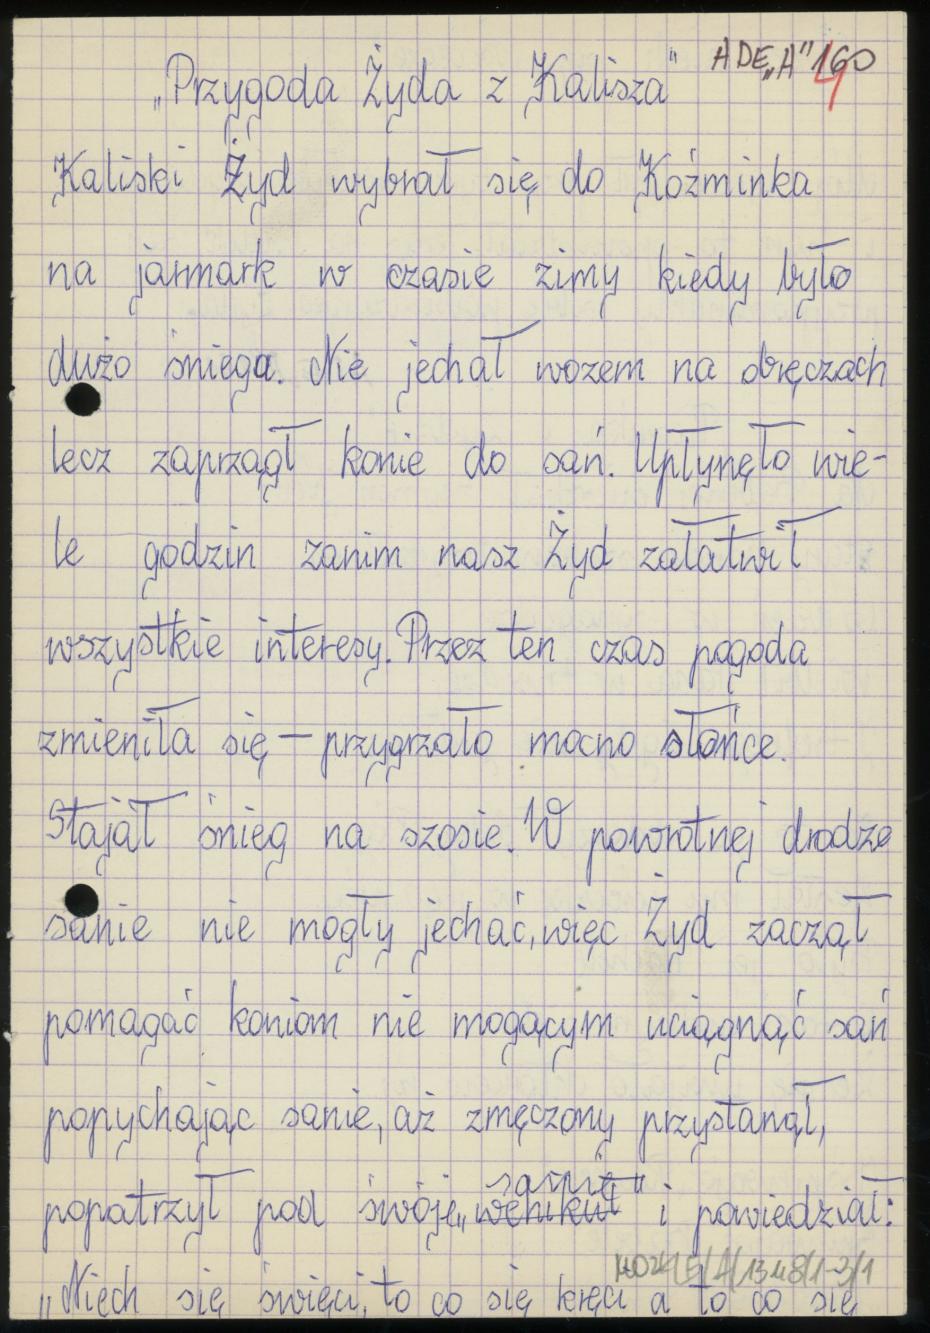 „Przygoda Żyda z Kalisza"
ADE „A" 160
Kaliski Żyd wybrał się do Koźminka
na jarmark w czasie zimy kiedy było
dużo śniega. Nie jechał wozem na obręczach
lecz zaprzągł konie do sań. Upłynęło wie-
le godzin zanim nasz Żyd załatwił
wszystkie interesy. Przez ten czas pogoda
zmieniła się – przygrzało mocno słońce.
Stajał śnieg na szosie. W powrotnej drodze
sanie nie mogły jechać, więc Żyd zaczął
pomagać koniom nie mogącym uciągnąć sań
popychając sanie, aż zmęczony przystanął,
popatrzył pod swoje „ " i powiedział:
„Niech się święci, to co się kręci a to co się